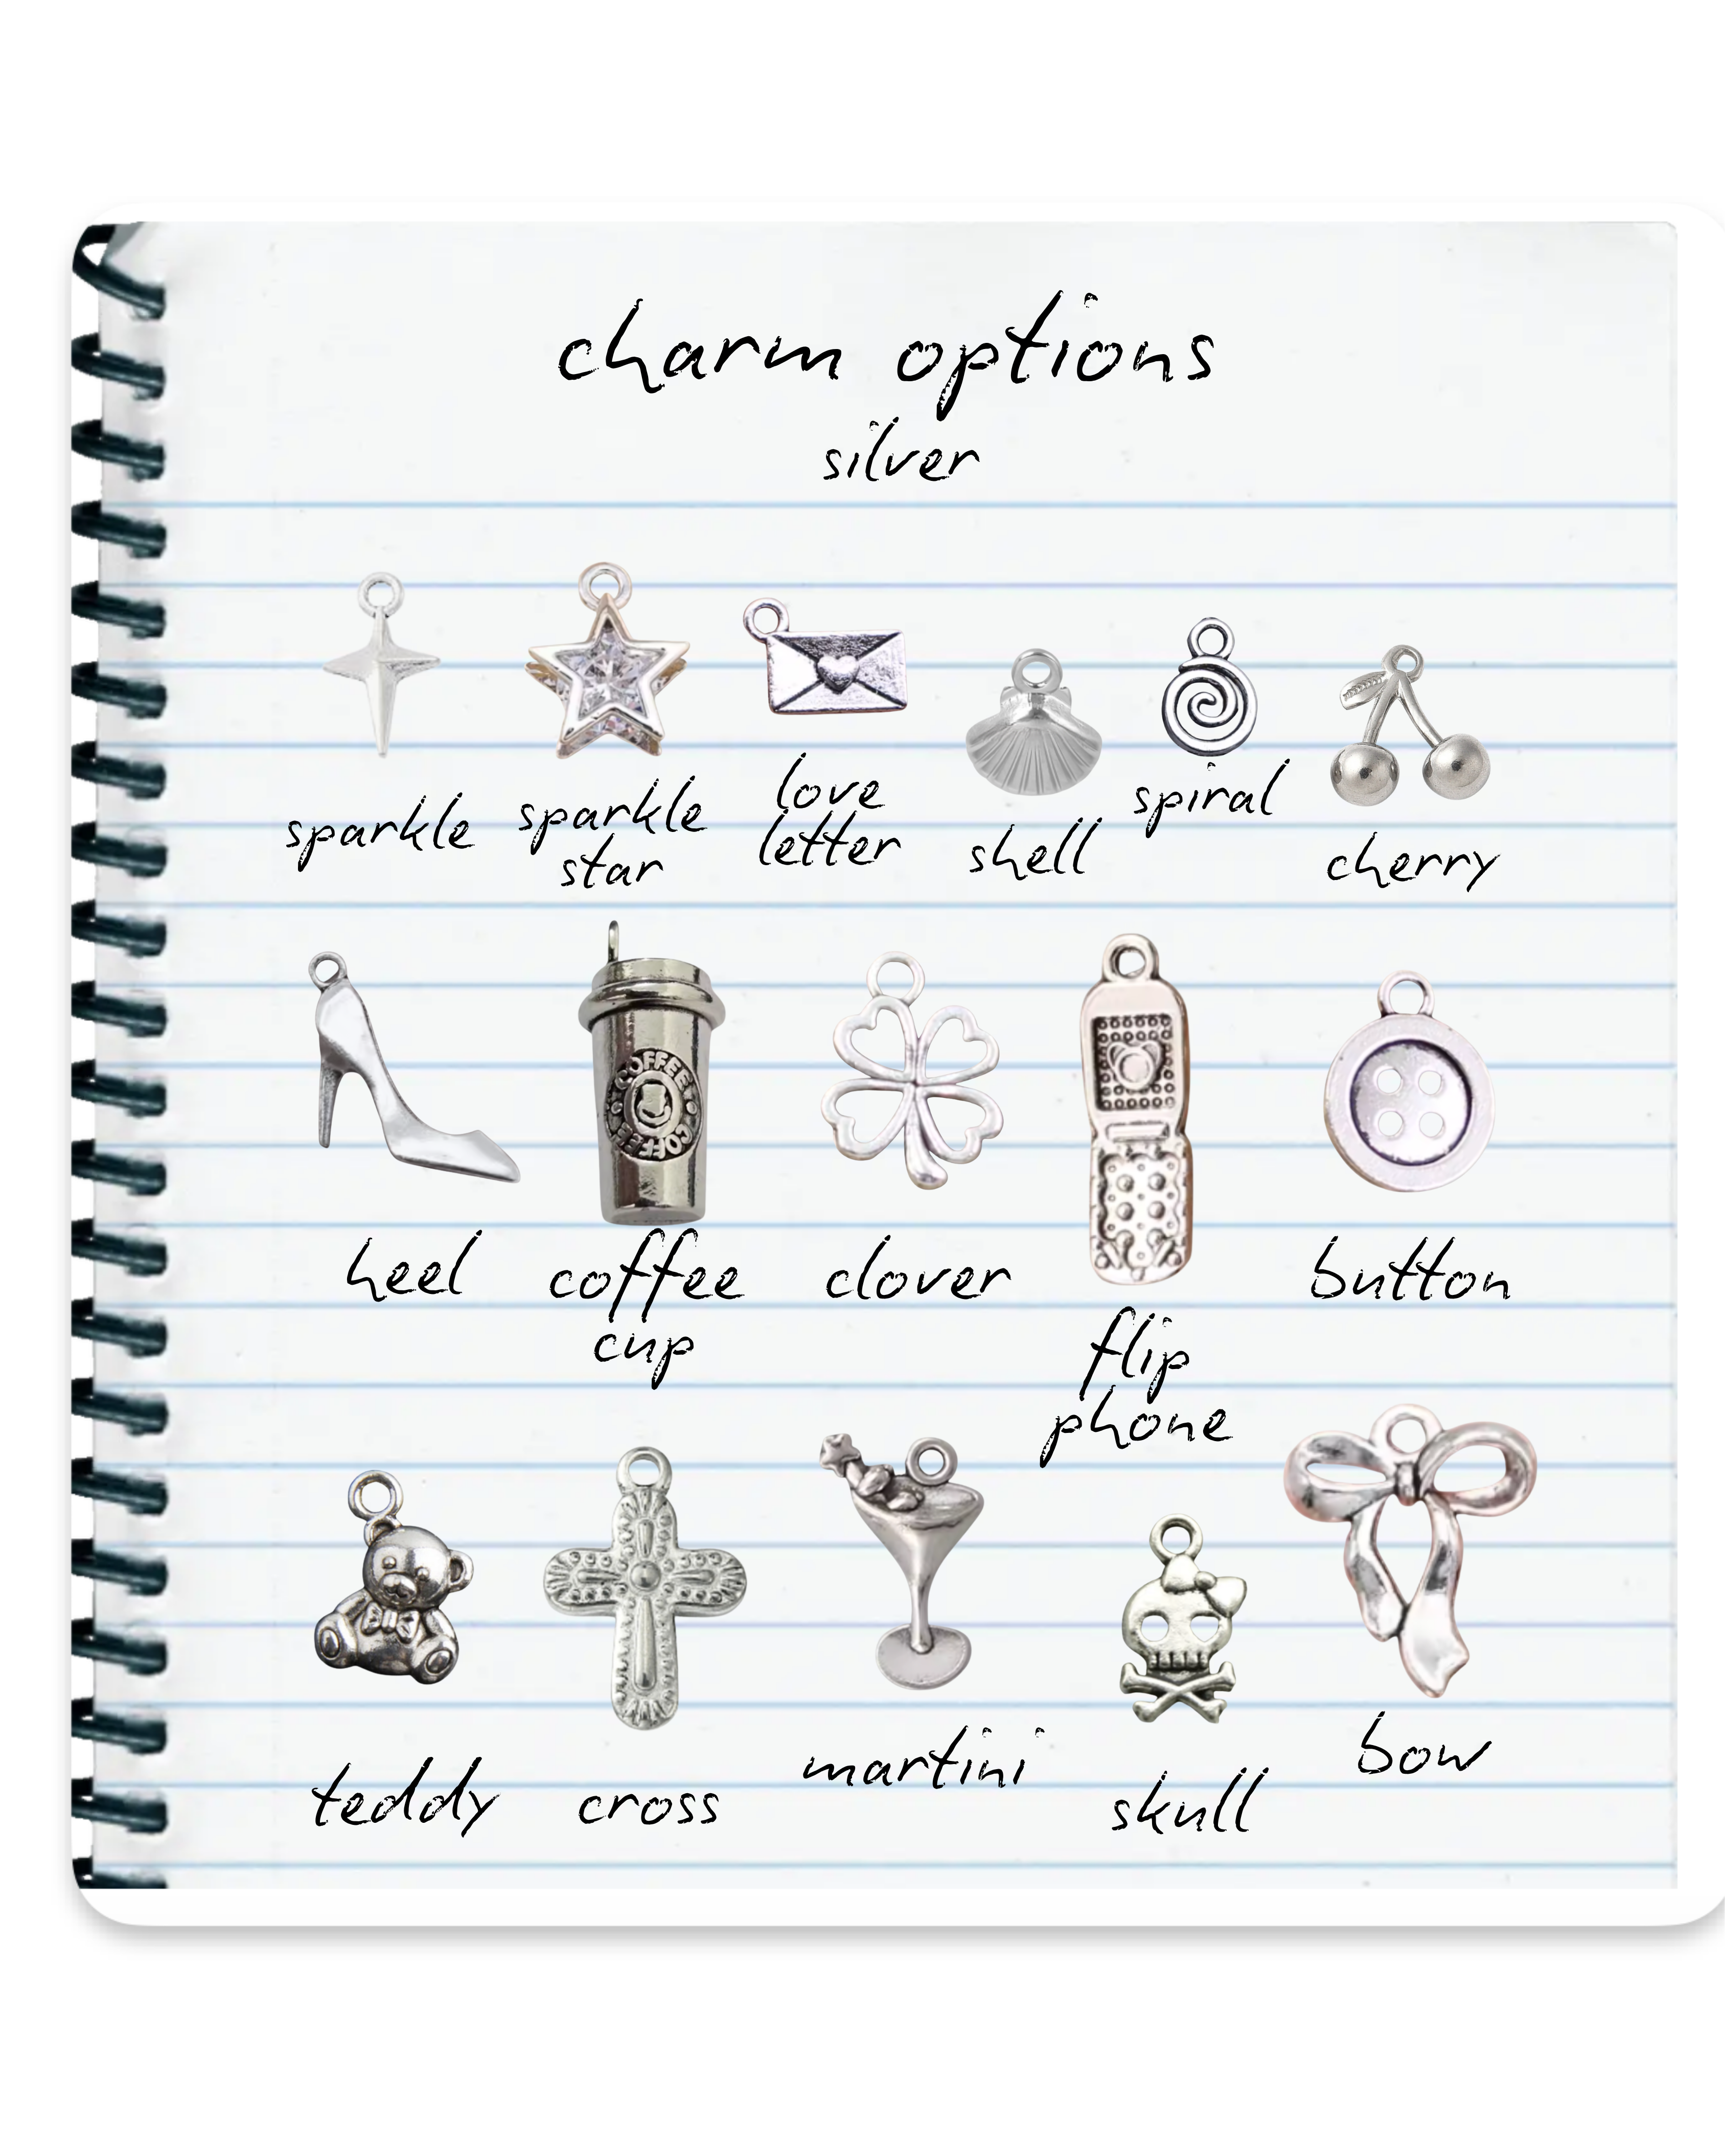 charm options
silver
sparkle
sparkle
star
love
letter
shell
spiral
cherry
COFFEE
COFFEE
COFFEE
heel
coffee
cup
clover
flip
phone
button
teddy
cross
martini
skull
bow